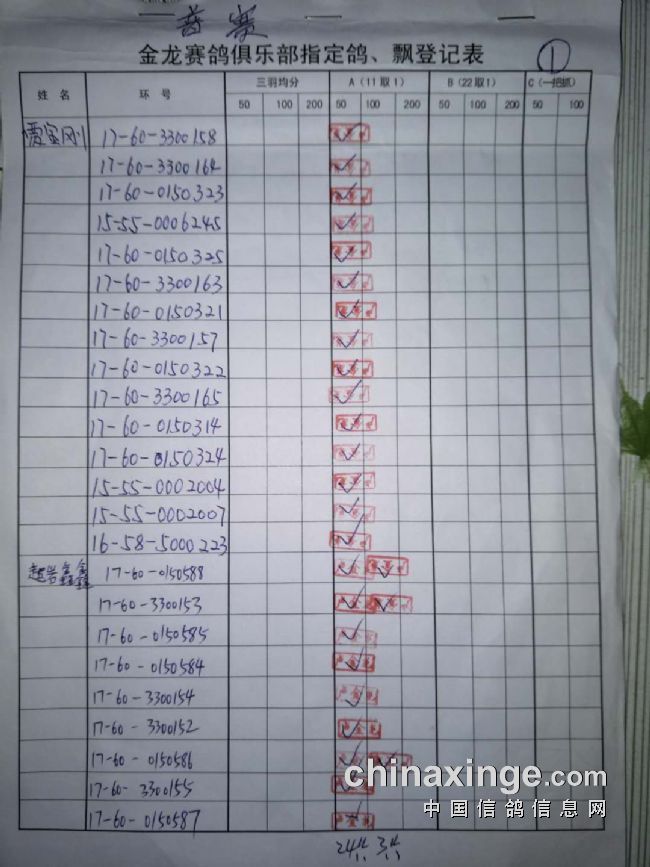 普赛
金龙赛鸽俱乐部指定鸽、飘登记表 ①
姓名 环号 三羽均分 A（11取1） B（22取1） C（一把抓）
50 100 200 50 100 200 50 100 200 50 100
17-60-3300158
17-60-3300164
17-60-0150323
15-55-0006245
17-60-0150325
17-60-3300163
17-60-0150321
17-60-3300157
17-60-0150322
17-60-3300165
17-60-0150314
17-60-0150324
15-55-0002004
15-55-0002007
16-58-5000223
17-60-0150588
17-60-3300153
17-60-0150585
17-60-0150584
17-60-3300154
17-60-3300152
17-60-0150586
17-60-3300155
17-60-0150587
chinaxinge.com
中国信鸽信息网